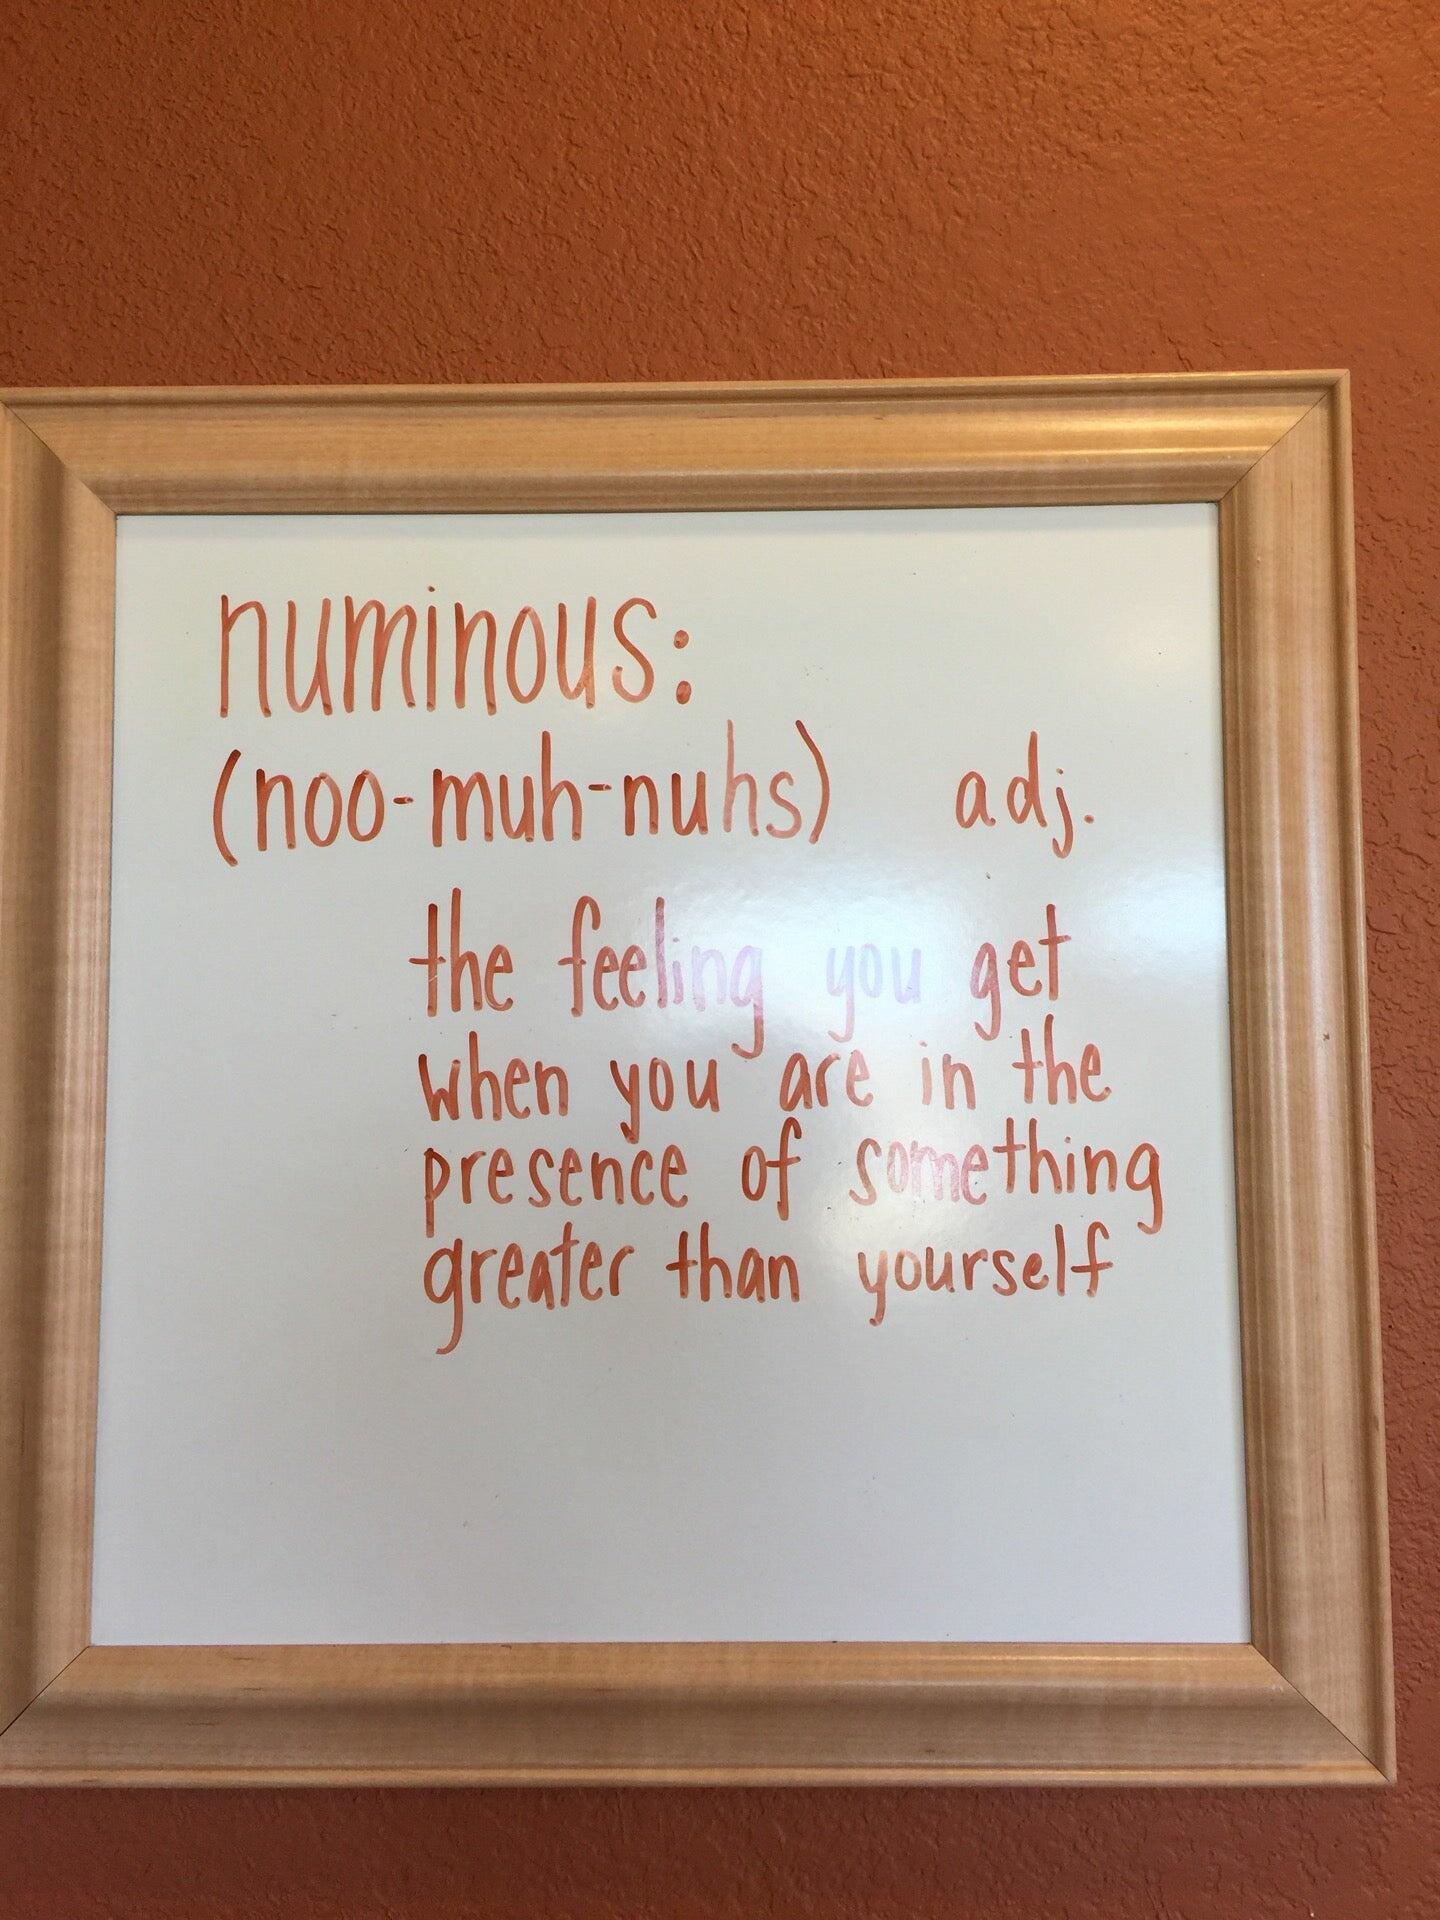 numinous:
(noo-muh-nuhs) adj.
the feeling you get
when you are in the
presence of something
greater than yourself